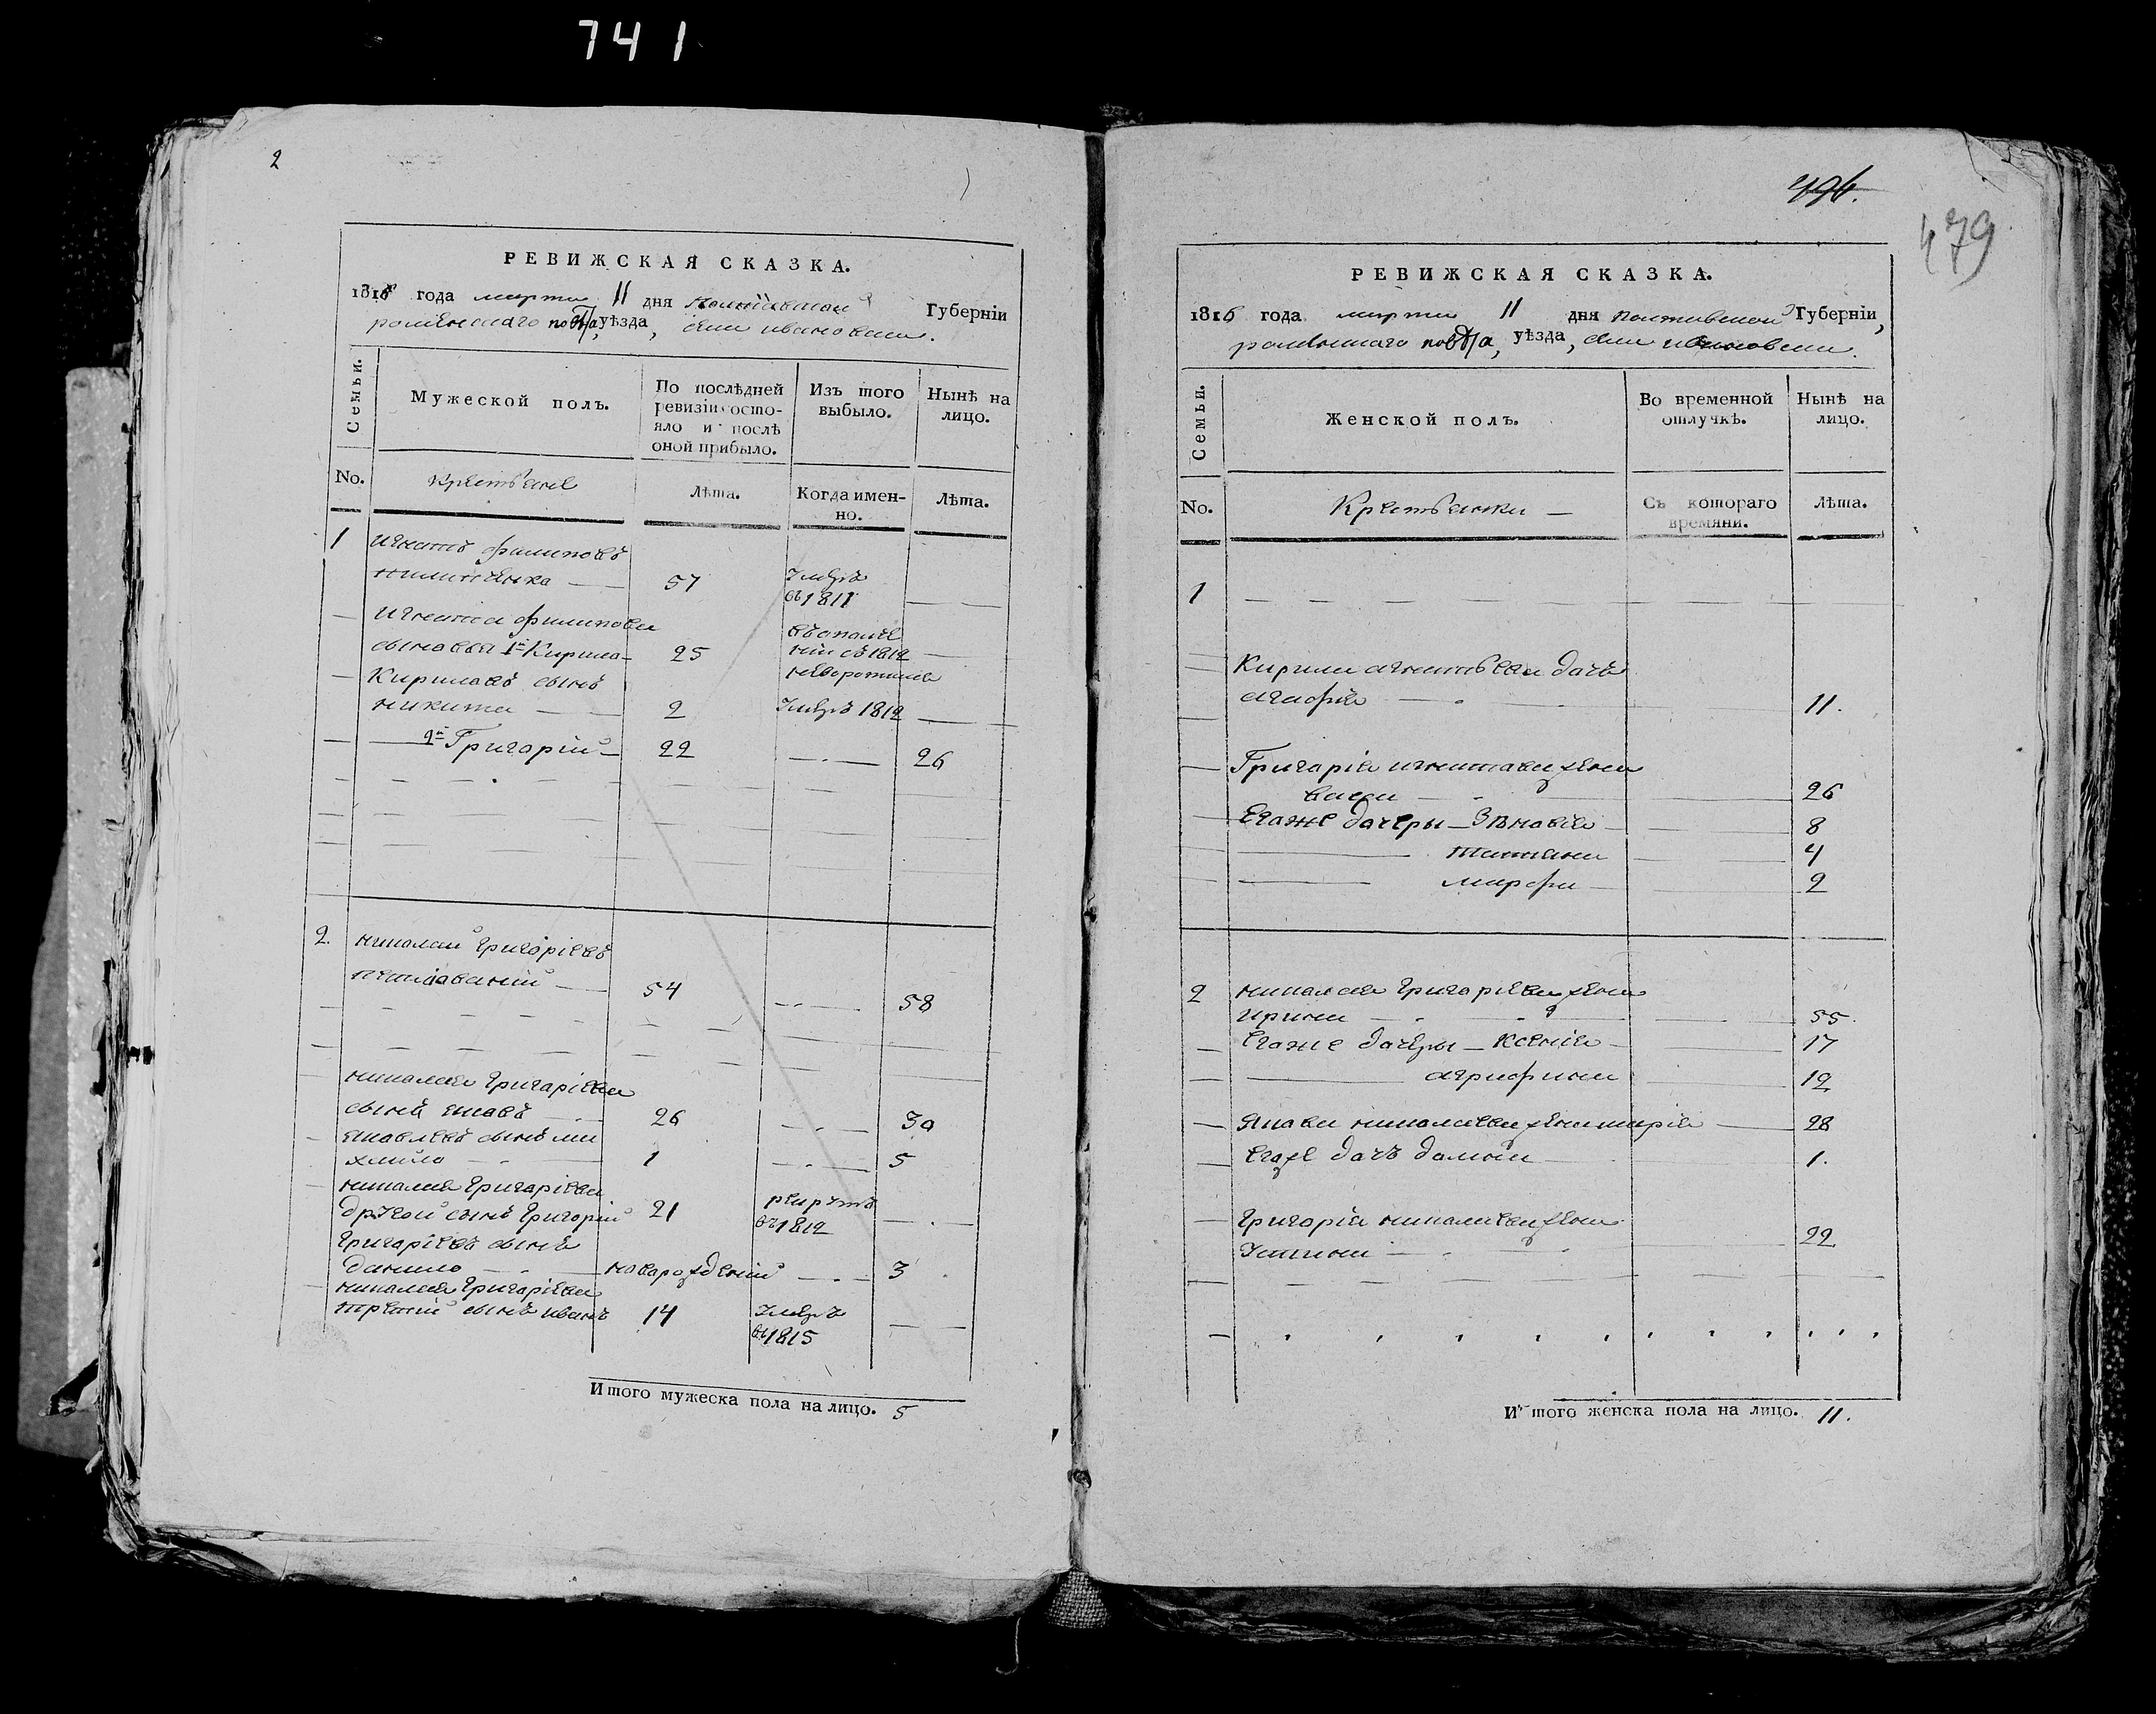 741
2
РЕВИЖСКАЯ СКАЗКА.
1816 года марта 11 дня полтавской Губерніи
роменского повѣта, уѣзда, села ивановки.
Семьи.
Мужеской полъ.
По послѣдней ревизіи состояло и послѣ оной прибыло.
Изъ того выбыло.
Нынѣ на лицо.
No.
Крестьяне
Лѣта.
Когда именно.
Лѣта.
1 игнатъ филиповъ
57 умеръ
въ 1811
игната филипова
сыновья 1й Кирило 25 въ ополче
ніи съ 1812
Кириловъ сынъ
неворотился
никита 2 умеръ 1812
2й Григорій 22 26
2. николай григоріевъ
54 58
николая григоріева
сынъ яковъ 26 30
яковлевъ сынъ ми
хайло 1 5
николая григоріева
другой сынъ григорій 21 рекрутъ
въ 1812
григоріевъ сынъ
данило новорожденій 3
николая григоріева
третій сынъ иванъ 14 умеръ
въ 1815
Итого мужеска пола на лицо. 5
496.
479
РЕВИЖСКАЯ СКАЗКА.
1816 года марта 11 дня полтавской Губерніи,
роменского повѣта, уѣзда, села ивановки.
Семьи.
Женской полъ.
Во временной отлучкѣ.
Нынѣ на лицо.
No.
Крестьянки
Съ котораго времяни.
Лѣта.
1
Кирила игнатьева дочь
агафія 11.
Григорія игнатова жена
васса 26
Егоже дочеры Зѣновія 8
татіяна 4
марфа 2
2 николая григоріева жена
ирина 55.
Егоже дочеры ксенія 17
агрифина 12
якова николаева жена марія 28
Егоже дочь домна 1.
григорія николаева жена
устина 22
Итого женска пола на лицо. 11.